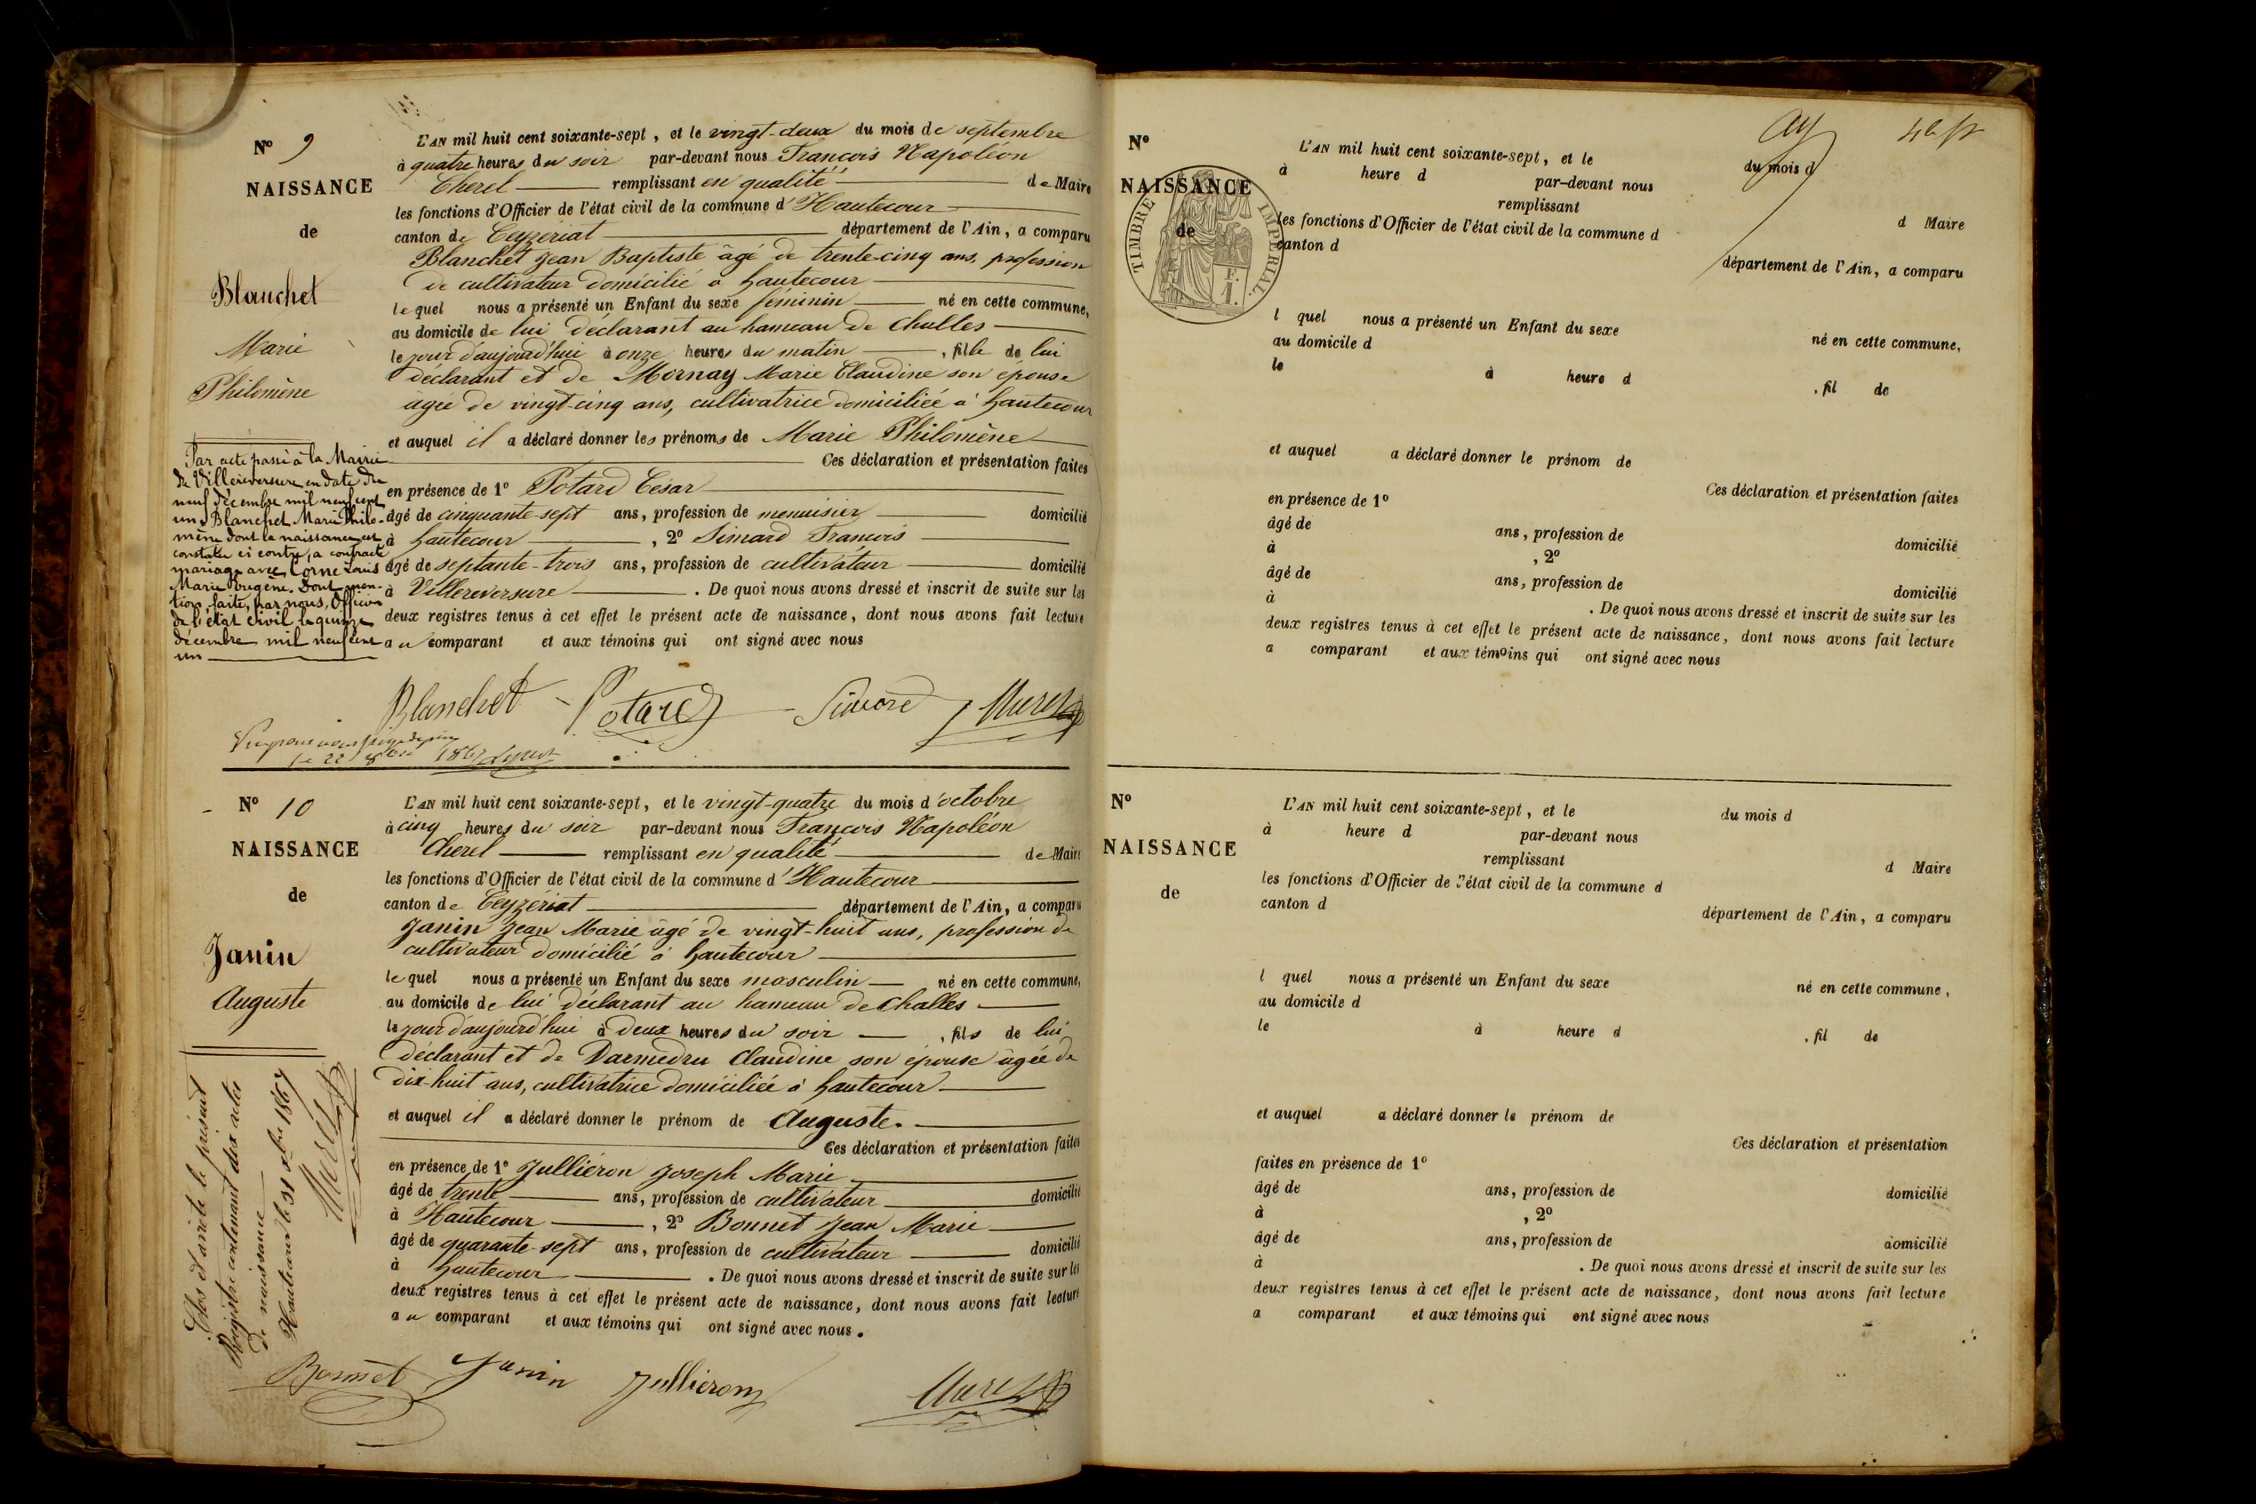 Nº 9
NAISSANCE
de
Blanchet
Marie
Philomène
Par acte passé à la Mairie
de Villereversure en date du
neuf décembre mil neuf cent
un, Blanchet Marie Philo-
mène dont la naissance est
constatée ci contre, a contracté
mariage avec Corne Louis
Marie Eugène. Dont men-
tion faite, par nous, Officier
de l'état civil le quinze
décembre mil neuf cent
un
L'AN mil huit cent soixante-sept, et le vingt-deux du mois de septembre
à quatre heures du soir par-devant nous François Napoléon
Cherel remplissant en qualité de Maire
les fonctions d'Officier de l'état civil de la commune d'Hautecour
canton de Ceyzériat département de l'Ain, a comparu
Blanchet Jean Baptiste âgé de trente-cinq ans, profession
de cultivateur domicilié à hautecour
lequel nous a présenté un Enfant du sexe féminin né en cette commune,
au domicile de lui déclarant au hameau de Challes
le jour d'aujourd'hui à onze heures du matin, fille de lui
déclarant et de Mornay Marie Claudine son épouse
agée de vingt-cinq ans, cultivatrice domiciliée à hautecour
et auquel il a déclaré donner les prénoms de Marie Philomène
Ces déclaration et présentation faites
en présence de 1º Potard César
âgé de cinquante-sept ans, profession de menuisier domicilié
à hautecour, 2º Simard François
âgé de septante-trois ans, profession de cultivateur domicilié
à Villereversure. De quoi nous avons dressé et inscrit de suite sur les
deux registres tenus à cet effet le présent acte de naissance, dont nous avons fait lecture
au comparant et aux témoins qui ont signé avec nous
Blanchet Potard Simard
le 22 1867
Nº 10
NAISSANCE
de
Janin
Auguste
L'AN mil huit cent soixante-sept, et le vingt-quatre du mois d'octobre
à cinq heures du soir par-devant nous François Napoléon
Cherel remplissant en qualité de Maire
les fonctions d'Officier de l'état civil de la commune d'Hautecour
canton de Ceyzériat département de l'Ain, a comparu
Janin Jean Marie âgé de vingt-huit ans, profession de
cultivateur domicilié à hautecour
lequel nous a présenté un Enfant du sexe masculin né en cette commune,
au domicile de lui déclarant au hameau de Challes
le jour d'aujourd'hui à deux heures du soir, fils de lui
déclarant et de Darmedru Claudine son épouse âgée de
dix-huit ans, cultivatrice domiciliée à hautecour
et auquel il a déclaré donner le prénom de Auguste.
Ces déclaration et présentation faites
en présence de 1º Julliéron Joseph Marie
âgé de trente ans, profession de cultivateur domicilié
à Hautecour, 2º Bonnet Jean Marie
âgé de quarante-sept ans, profession de cultivateur domicilié
à hautecour. De quoi nous avons dressé et inscrit de suite sur les
deux registres tenus à cet effet le présent acte de naissance, dont nous avons fait lecture
au comparant et aux témoins qui ont signé avec nous.
Clos et arrêté le présent
Registre contenant dix actes
de naissance
Hautecour le 31 xbre 1867
Bonnet Janin Julliéron
Nº
NAISSANCE
de
TIMBRE IMPERIAL
L'AN mil huit cent soixante-sept, et le du mois d
à heure d par-devant nous
remplissant d Maire
les fonctions d'Officier de l'état civil de la commune d
canton d département de l'Ain, a comparu
l quel nous a présenté un Enfant du sexe né en cette commune,
au domicile d
le à heure d , fil de
et auquel a déclaré donner le prénom de
Ces déclaration et présentation faites
en présence de 1º
âgé de ans, profession de domicilié
à , 2º
âgé de ans, profession de domicilié
à . De quoi nous avons dressé et inscrit de suite sur les
deux registres tenus à cet effet le présent acte de naissance, dont nous avons fait lecture
a comparant et aux témoins qui ont signé avec nous
Nº
NAISSANCE
de
L'AN mil huit cent soixante-sept, et le du mois d
à heure d par-devant nous
remplissant d Maire
les fonctions d'Officier de l'état civil de la commune d
canton d département de l'Ain, a comparu
l quel nous a présenté un Enfant du sexe né en cette commune,
au domicile d
le à heure d , fil de
et auquel a déclaré donner le prénom de
Ces déclaration et présentation
faites en présence de 1º
âgé de ans, profession de domicilié
à , 2º
âgé de ans, profession de domicilié
à . De quoi nous avons dressé et inscrit de suite sur les
deux registres tenus à cet effet le présent acte de naissance, dont nous avons fait lecture
a comparant et aux témoins qui ont signé avec nous